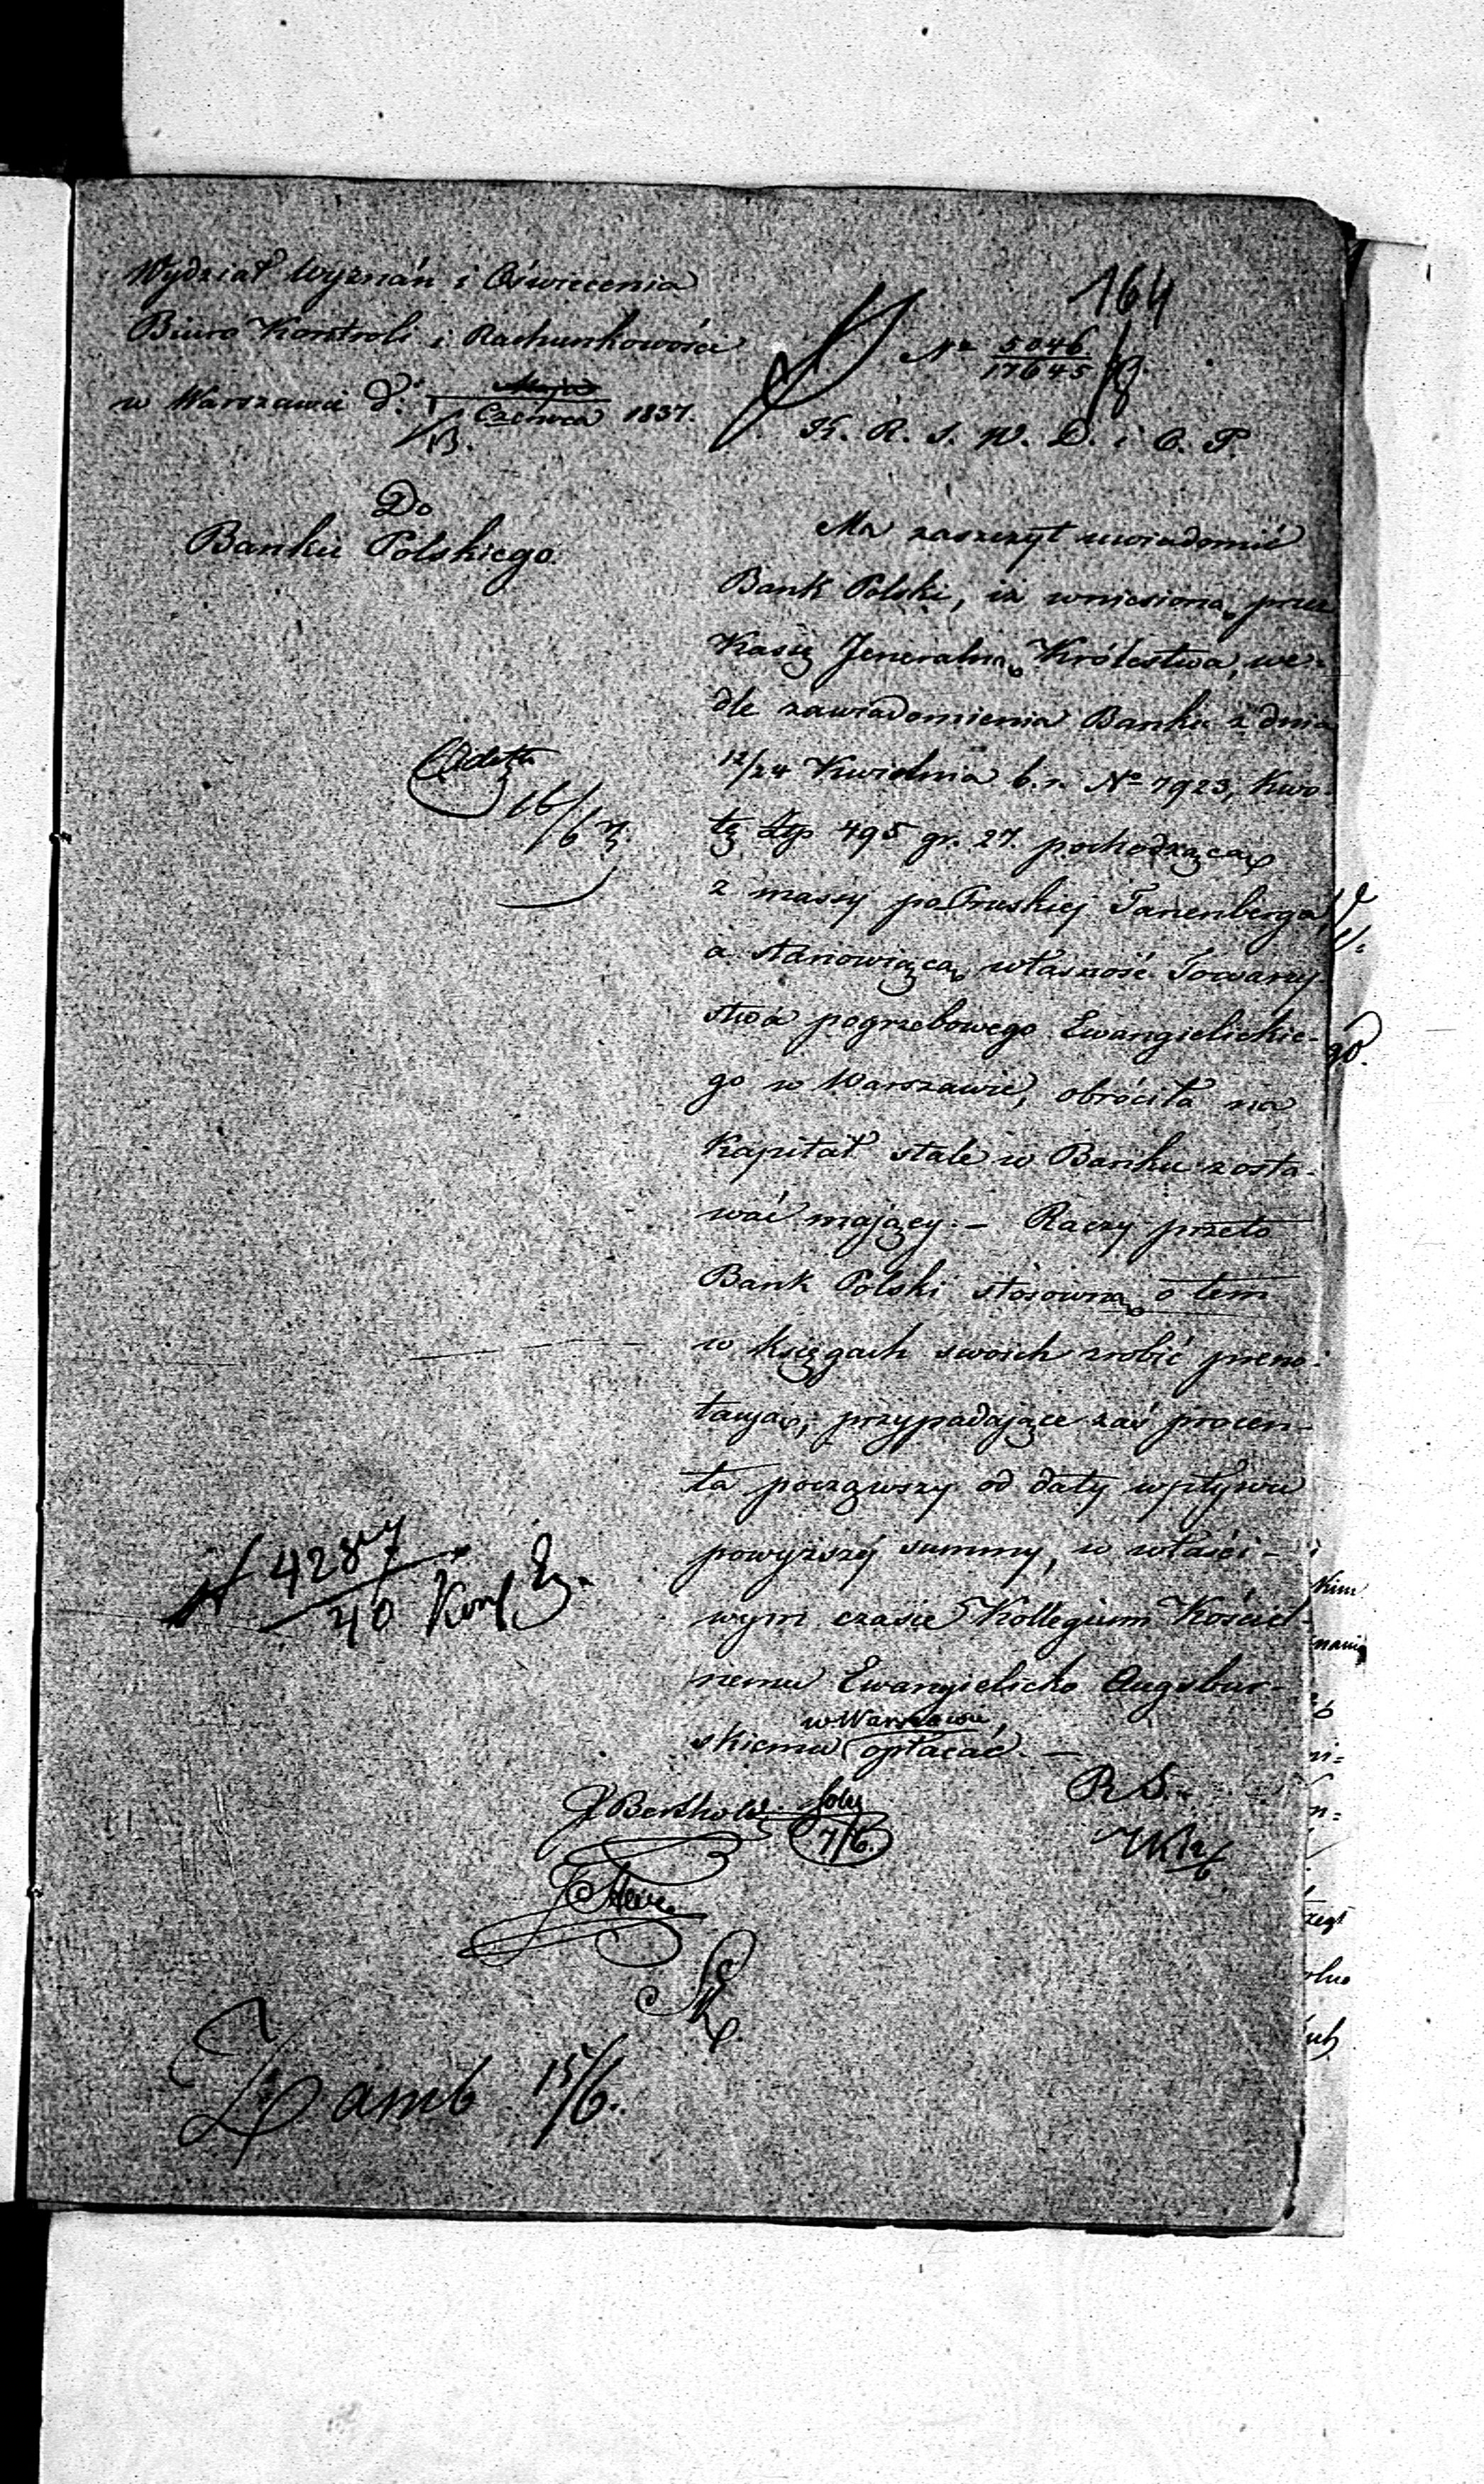 164
Wydział Wyznań i Oświecenia
Biuro Kontroli i Rachunkowości
w Warszawie d. 1/13 Maja Czerwca 1837.
No 5046/17645
K. R. S. W. D. i O. P.
Do
Banku Polskiego.
Ma zaszczyt uwiadomić
Bank Polski, iż wniesioną przez
Kassę Jeneralną Królestwa, we-
dle zawiadomienia Banku z dnia
12/24 Kwietnia b. r. No 7923, kwo-
tę Złp 495 gr. 27. pochodzącą
z massy poPruskiej Tanenberga,
a stanowiącą własność Towarzy-
stwa pogrzebowego Ewangielickie-
go w Warszawie, obróciła na
Kapitał stale w Banku zosta-
wać mający. – Raczy przeto
Bank Polski stosowną o tem
w księgach swoich zrobić preno-
tacyą, przypadające zaś procen-
ta począwszy od daty wpływu
powyższej summy, w właści-
wym czasie Kollegium Kościel-
nemu Ewangielicko Augsbur-
skiemu w Warszawie, opłacać. –
16/6
N 4287/40
J Berthold.
7/6.
R S.
15/6.